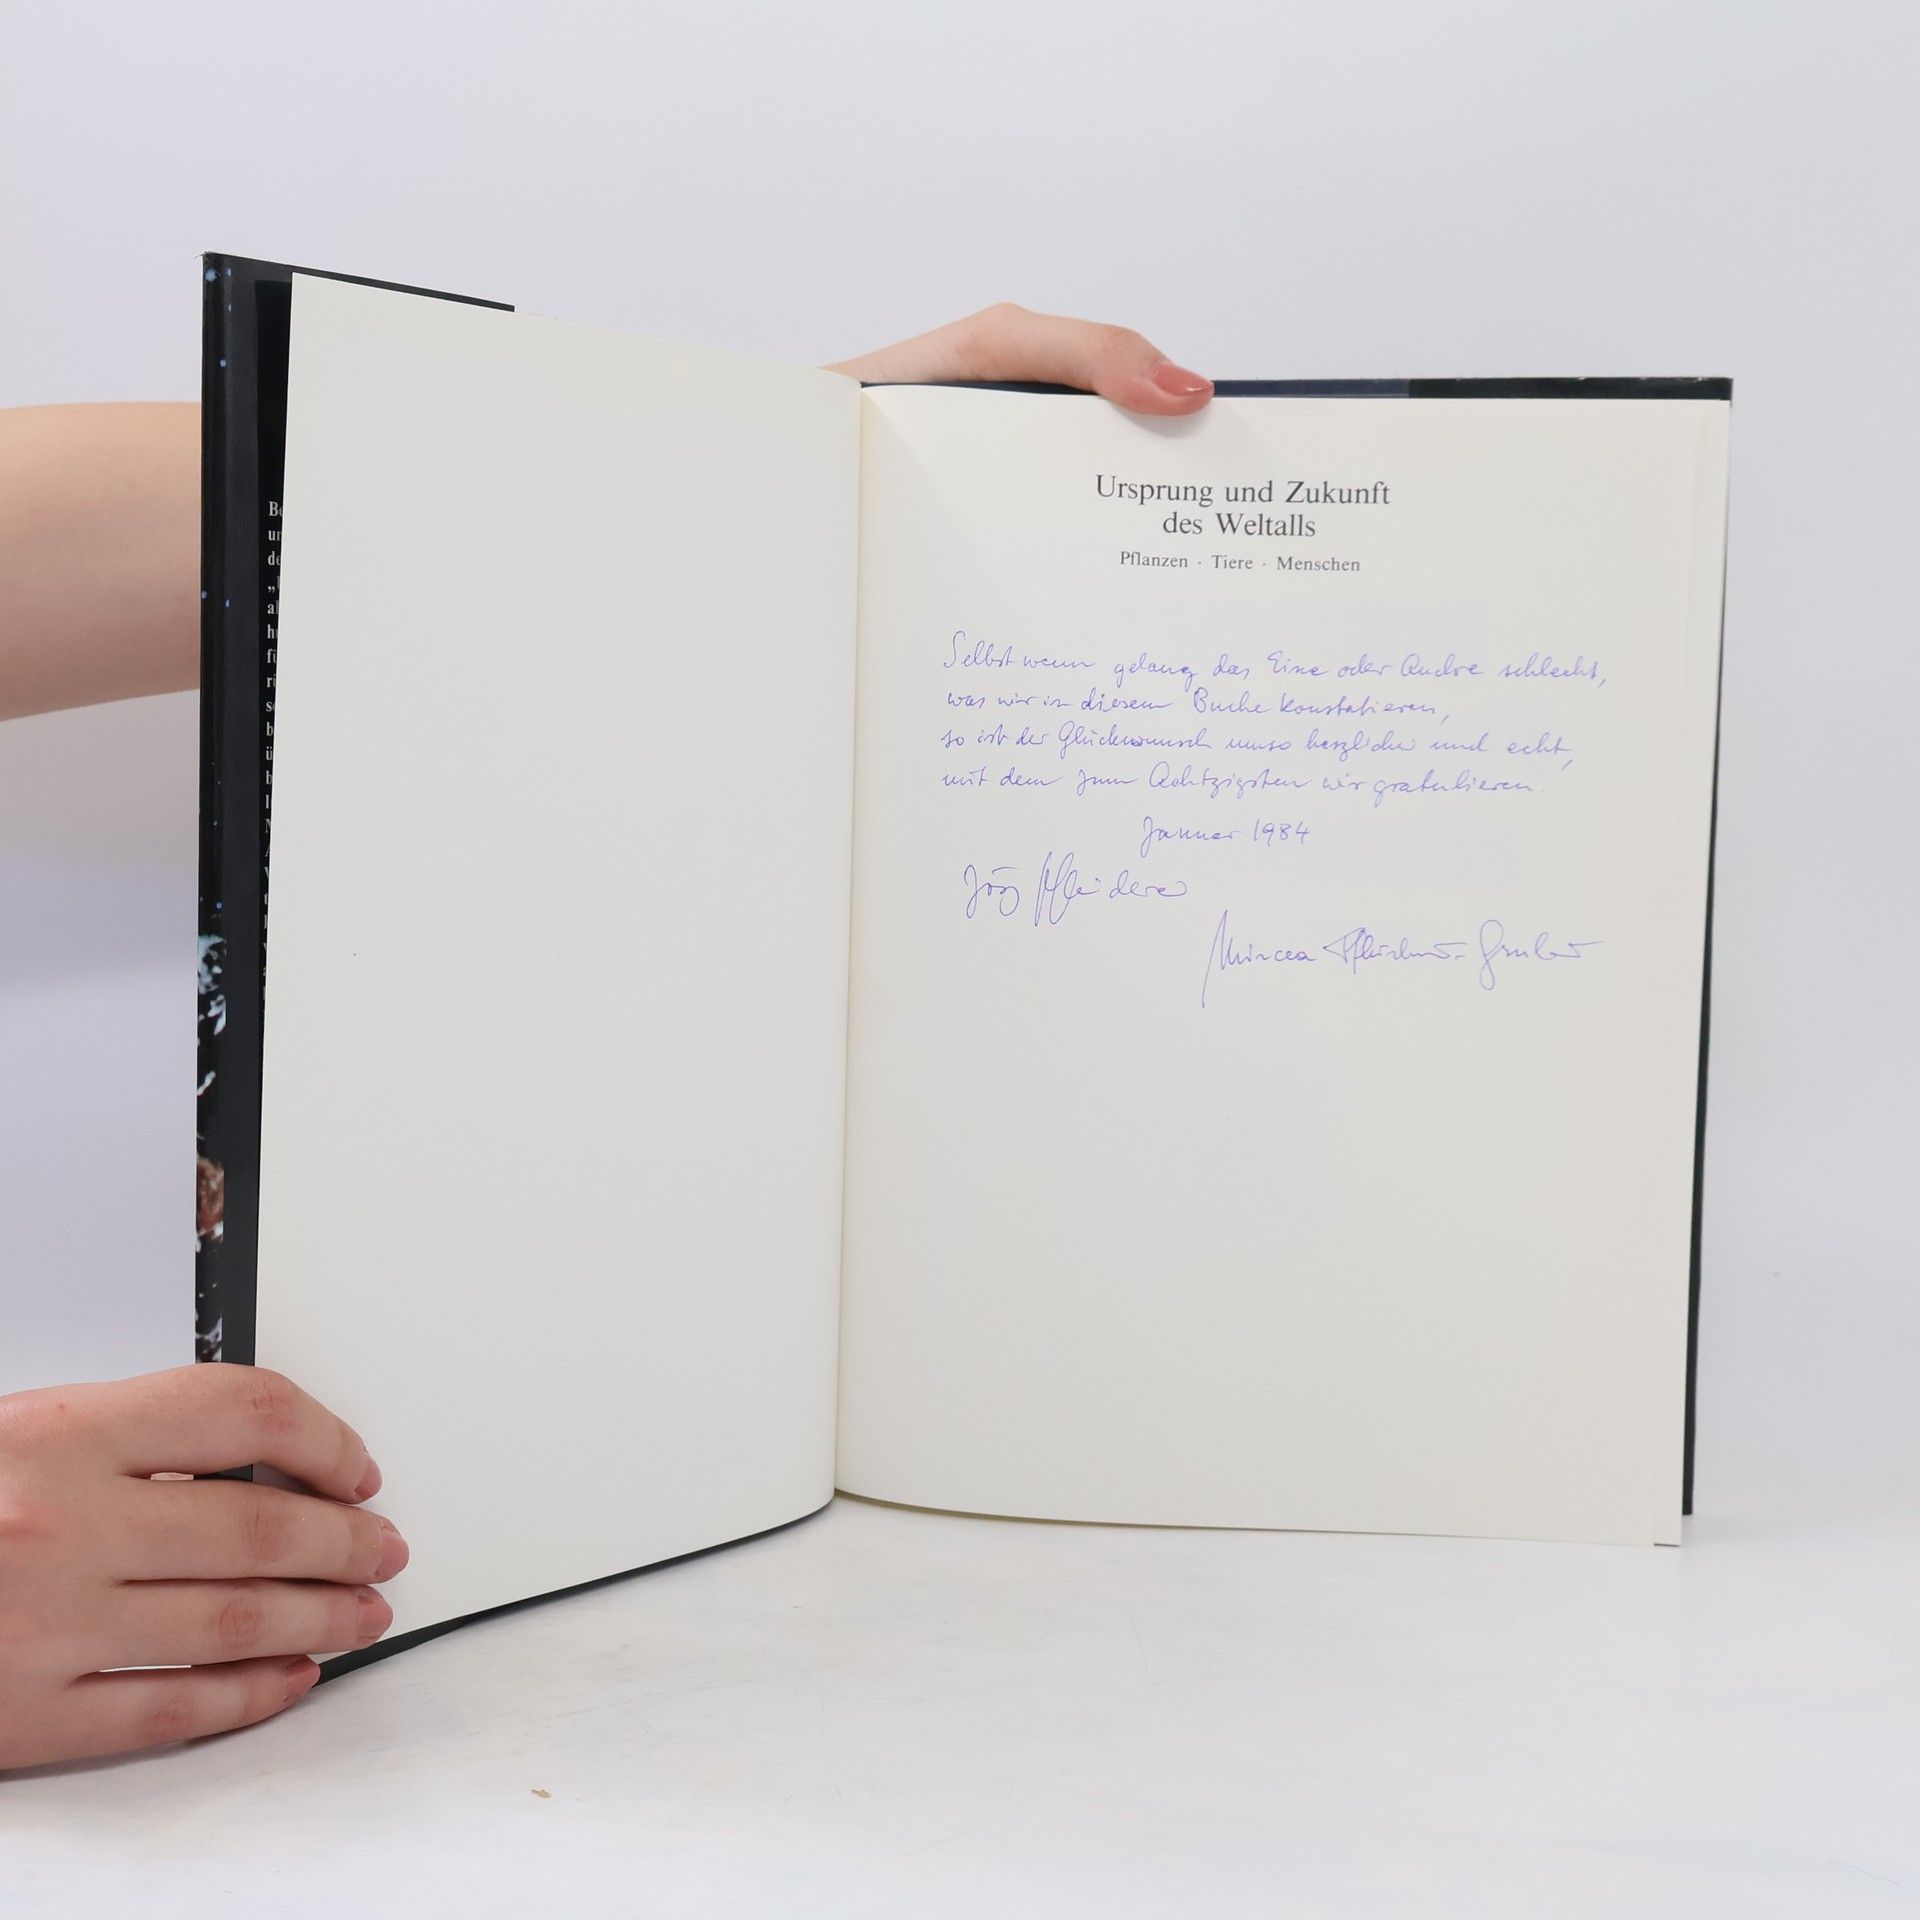 Be
un
de
al
fü
Ursprung und Zukunft
des Weltalls
Pflanzen · Tiere · Menschen
Selbst wenn gelang das Eine oder Andre schlecht,
was wir in diesem Buche konstatieren,
so ist der Glückwunsch umso herzlicher und echt,
mit dem zum Achtzigsten wir gratulieren.
Januar 1984
Jörg Pfleiderer
Mircea Pfleiderer-Gruber